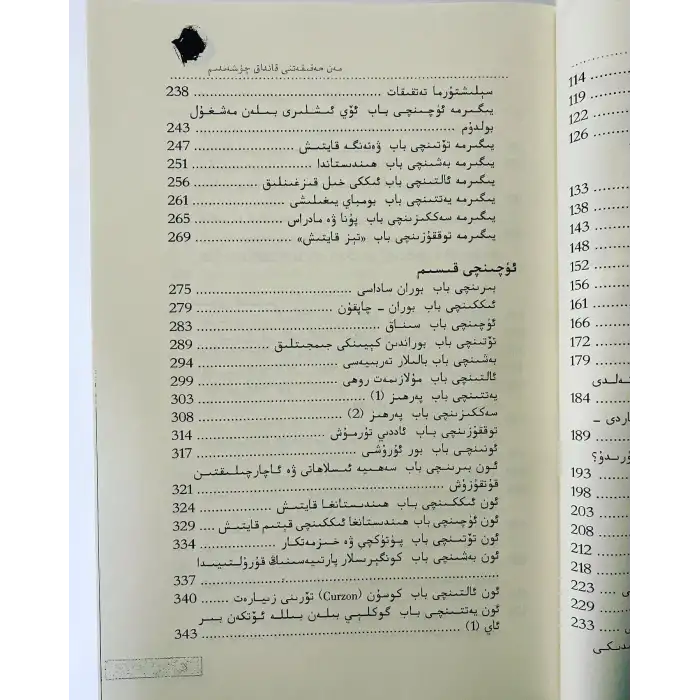 مەن ھەقىقەتنى قانداق چۈشەندىم
سېلىشتۇرما تەتقىقات ........ 238
يىگىرمە ئۈچىنچى باب ئۆي ئىشلىرى بىلەن مەشغۇل
بولدۇم ........ 243
يىگىرمە تۆتىنچى باب ۋەتەنگە قايتىش ........ 247
يىگىرمە بەشىنچى باب ھىندىستاندا ........ 251
يىگىرمە ئالتىنچى باب ئىككى خىل قىزغىنلىق ........ 256
يىگىرمە يەتتىنچى باب بومباي يىغىلىشى ........ 261
يىگىرمە سەككىزىنچى باب پۇنا ۋە مادراس ........ 265
يىگىرمە توققۇزىنچى باب «تېز قايتىش» ........ 269
ئۈچىنچى قىسىم
بىرىنچى باب بوران ساداسى ........ 275
ئىككىنچى باب بوران - چاپقۇن ........ 279
ئۈچىنچى باب سىناق ........ 283
تۆتىنچى باب بوراندىن كېيىنكى جىمجىتلىق ........ 289
بەشىنچى باب بالىلار تەربىيەسى ........ 294
ئالتىنچى باب مۇلازىمەت روھى ........ 299
يەتتىنچى باب پەرھىز (1) ........ 303
سەككىزىنچى باب پەرھىز (2) ........ 308
توققۇزىنچى باب ئاددىي تۇرمۇش ........ 314
ئونىنچى باب بور ئۇرۇشى ........ 317
ئون بىرىنچى باب سەھىيە ئىسلاھاتى ۋە ئاچارچىلىقتىن
قۇتقۇزۇش ........ 321
ئون ئىككىنچى باب ھىندىستانغا قايتىش ........ 324
ئون ئۈچىنچى باب ھىندىستانغا ئىككىنچى قېتىم قايتىش .... 329
ئون تۆتىنچى باب پۈتۈكچى ۋە خىزمەتكار ........ 334
ئون بەشىنچى باب كونگېرىسلار پارتىيەسىنىڭ قۇرۇلتىيىدا
........ 337
ئون ئالتىنچى باب كوسۇن (Curzon) تۆرىنى زىيارەت ....... 340
ئون يەتتىنچى باب گوكلېي بىلەن بىللە ئۆتكەن بىر
ئاي (1) ........ 343
3
114 ....
119 ....
122 ....
126 ....
133 ....
138 ....
143 ....
148 ....
152 ....
156 ....
161 ....
166 ....
172 ....
179 ....
ﻪلدى
184 ....
اردى -
189 ....
ۇرىدۇ؟
193 ....
198 ....
203 ....
208 ....
212 ....
218 ....
223 ....
229 ....
233 ....
ﯩدىكى